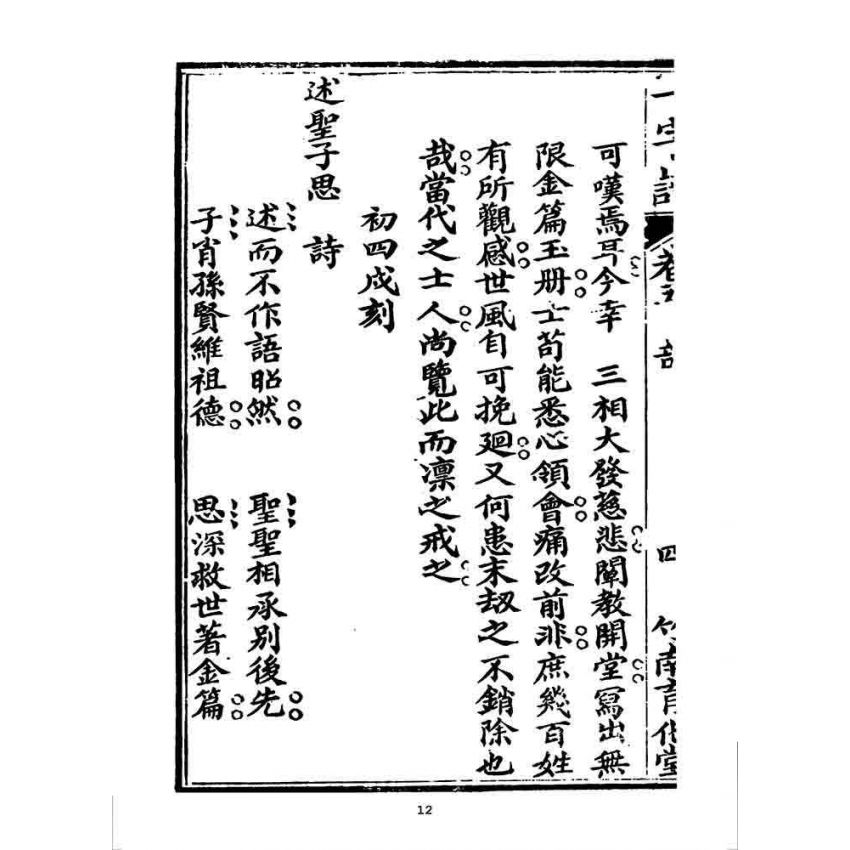 四 竹南育化堂
可嘆焉耳今幸 三相大發慈悲闡教開堂寫出無
限金篇玉册士苟能悉心領會痛改前非庶幾百姓
有所觀感世風自可挽廻又何患末刼之不銷除也
哉當代之士人尚覽此而凛之戒之
初四戌刻
述聖子思 詩
述而不作語昭然 聖聖相承別後先
子肖孫賢維祖德 思深救世著金篇
12